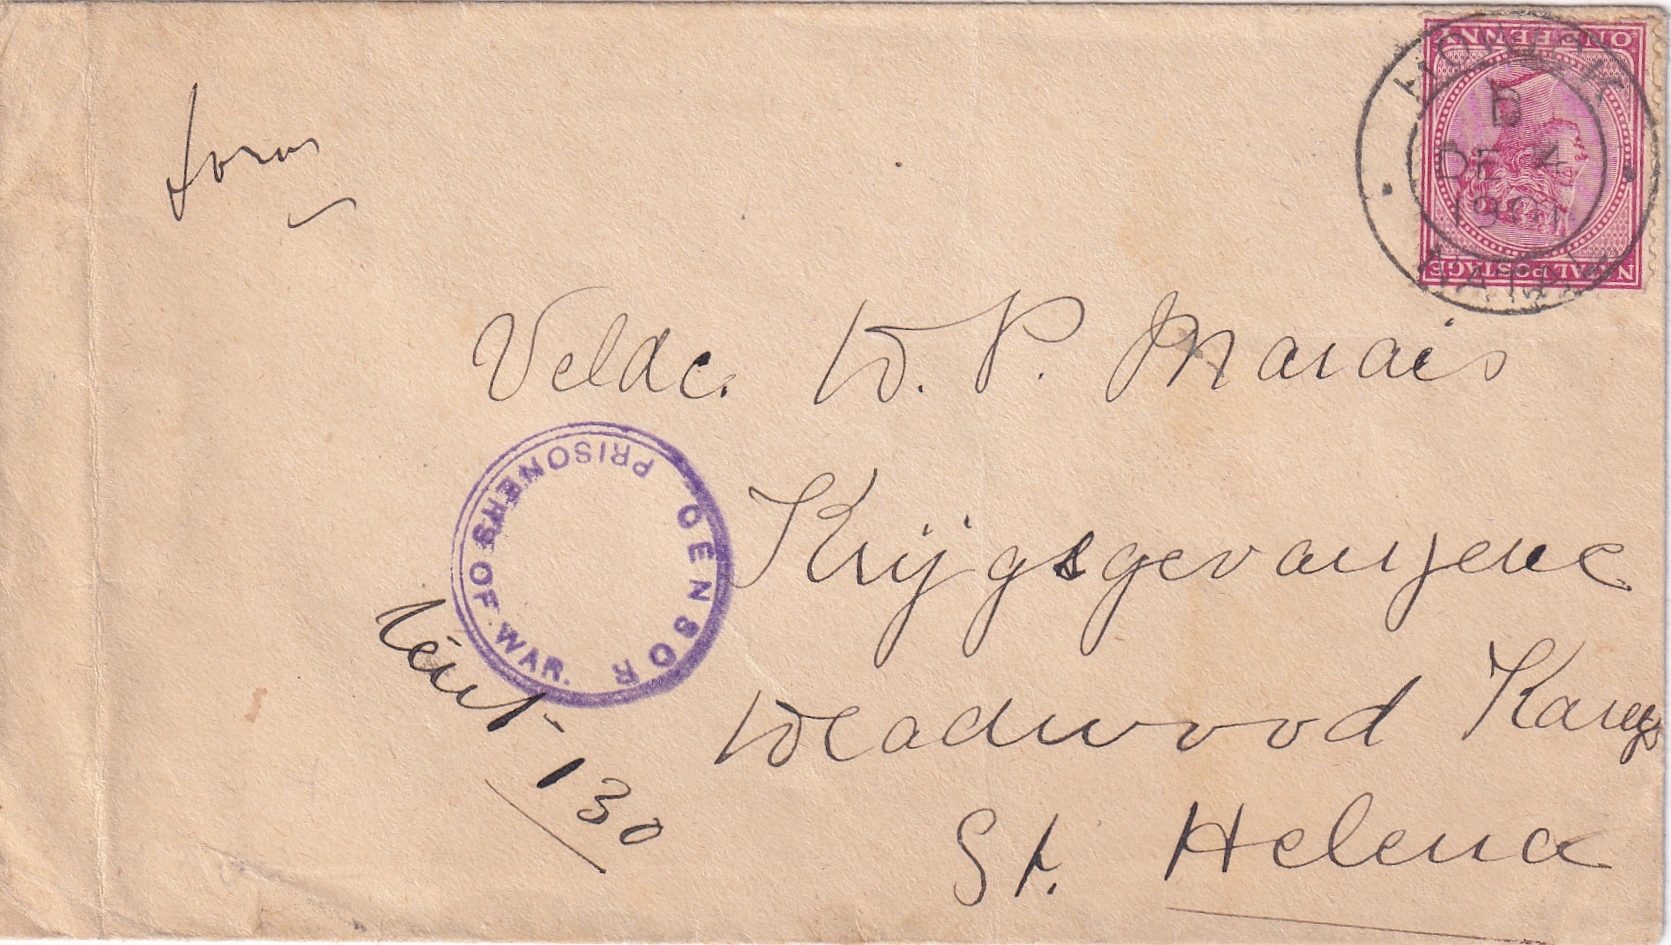 HOWICK
D
DE 4
1901
NATAL
ONE PENNY
NATAL POSTAGE
Veldc. W. P. Marais
Krijgsgevangene
Deadwood Kamp
St. Helena
CENSOR
PRISONERS OF WAR.
Tent 130